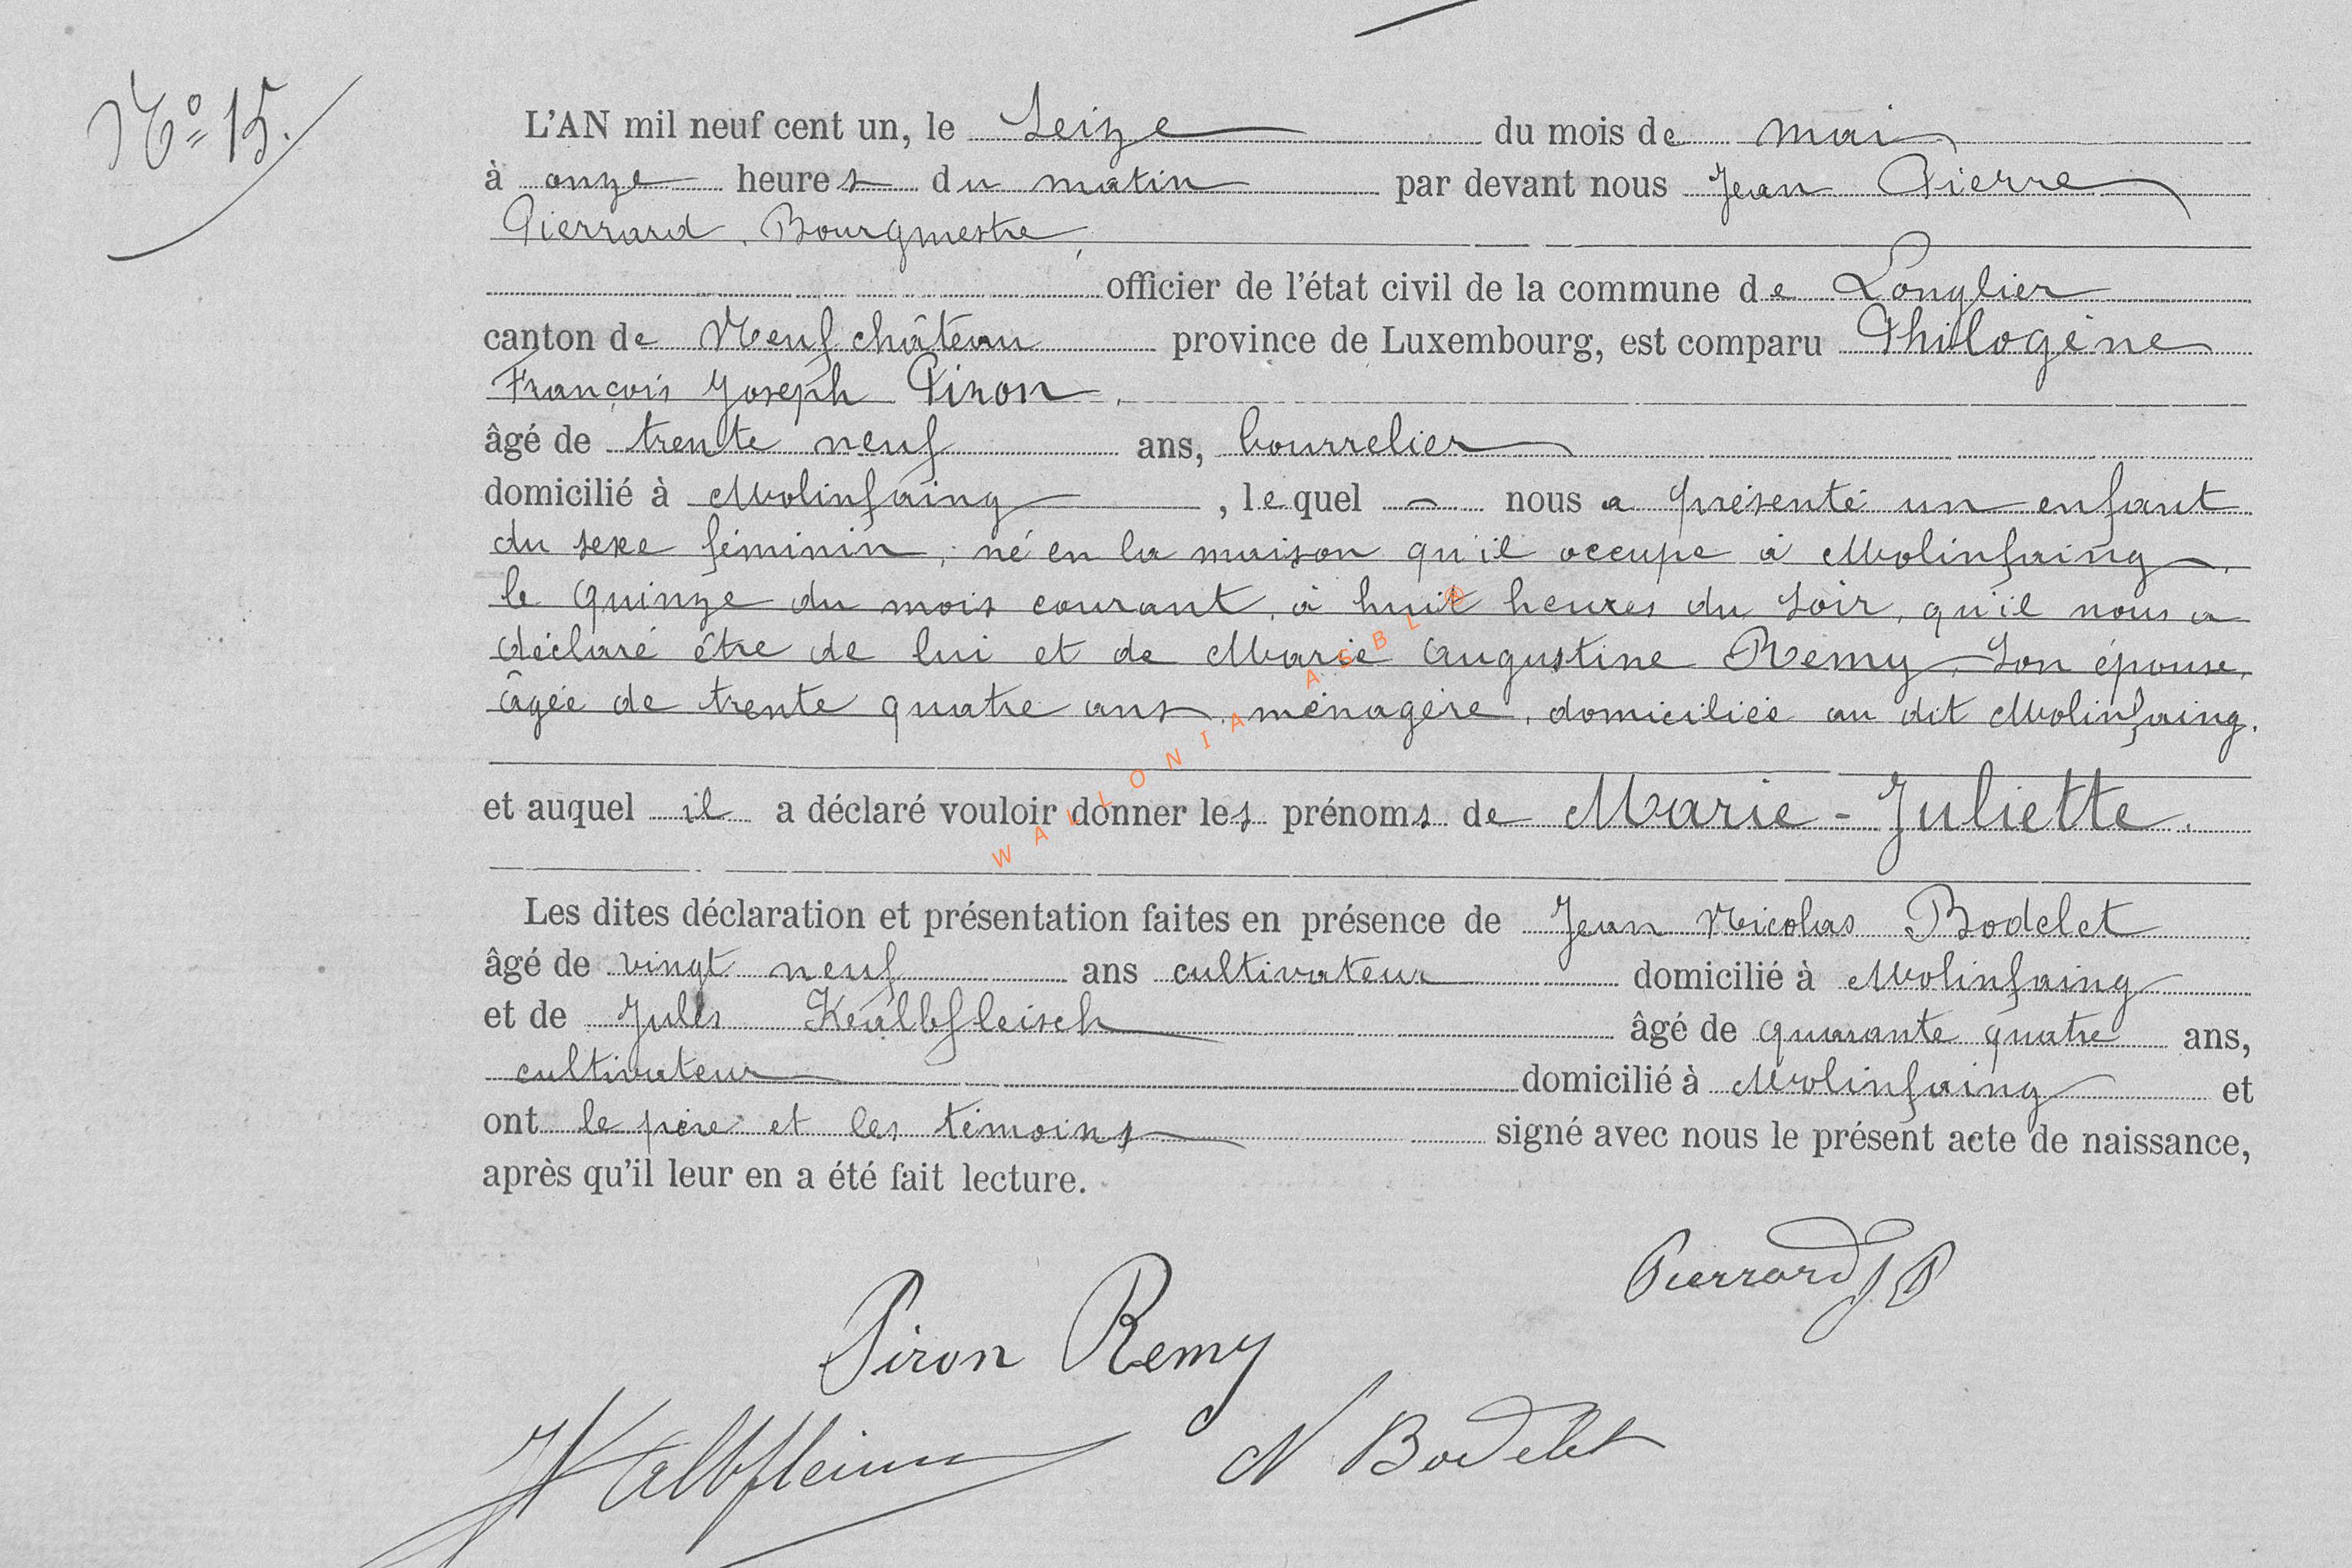 N° 15.
L'AN mil neuf cent un, le Seize du mois de mai
à onze heures du matin par devant nous Jean Pierre
Pierrard, Bourgmestre,
officier de l'état civil de la commune de Longlier
canton de Neufchâteau province de Luxembourg, est comparu Philogène
François Joseph Piron,
âgé de trente neuf ans, bourrelier
domicilié à Molinfaing, lequel nous a présenté un enfant
du sexe féminin, né en la maison qu'il occupe à Molinfaing,
le quinze du mois courant, à huit heures du soir, qu'il nous a
déclaré être de lui et de Marie Augustine Remy, son épouse,
âgée de trente quatre ans, ménagère, domiciliée au dit Molinfaing.
et auquel il a déclaré vouloir donner les prénoms de Marie-Juliette.
Les dites déclaration et présentation faites en présence de Jean Nicolas Bodelet
âgé de vingt neuf ans cultivateur domicilié à Molinfaing
et de Jules Kalbfleisch âgé de quarante quatre ans,
cultivateur domicilié à Molinfaing et
ont le père et les témoins signé avec nous le présent acte de naissance,
après qu'il leur en a été fait lecture.
Pierrard JP
Piron Remy
J Kalbfleisch N Bodelet
WALLONIA ASBL ®